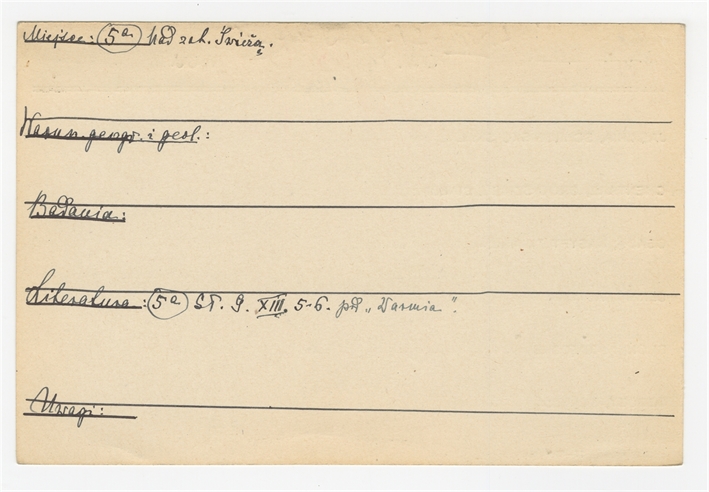 Miejsce: 5a Nad zat. Świeżą.
Warun. geogr. i geol.:
Badania:
Literatura: 5a St. G. XIII. 5-6. pod „Warmia".
Uwagi: